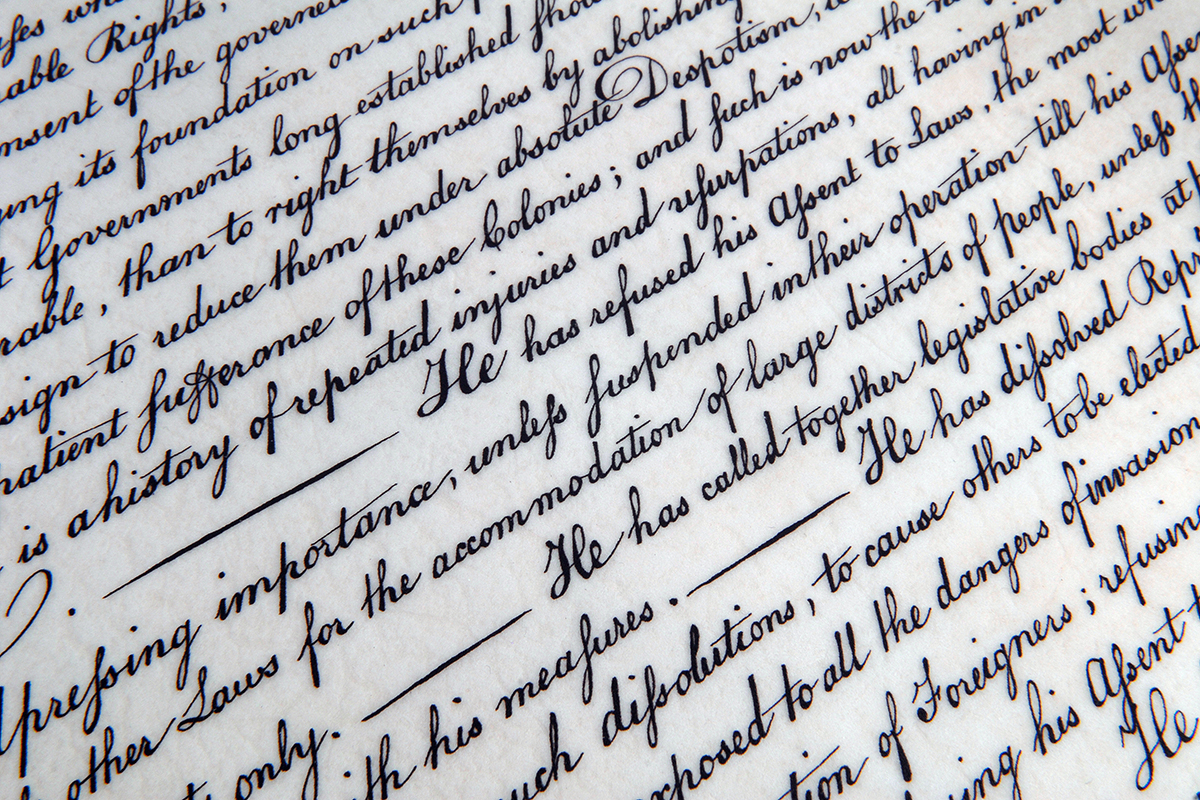 nable Rights,
nsent of the governed
ing its foundation on such
t Governments long established ſhou
rable, than to right themselves by abolishing
sign to reduce them under absolute Despotism,
patient ſufferance of these Colonies; and ſuch is now the
is a history of repeated injuries and uſurpations, all having in
. — He has refused his Aſsent to Laws, the most wh
preſsing importance, unleſs ſuspended in their operation till his Aſsen
other Laws for the accommodation of large districts of people, unleſs th
only. — He has called together legislative bodies at
th his meaſures. — He has diſsolved Repr
uch diſsolutions, to cause others to be elected
xposed to all the dangers of invasion
tion of Foreigners; refusing
ing his Aſsent t
He